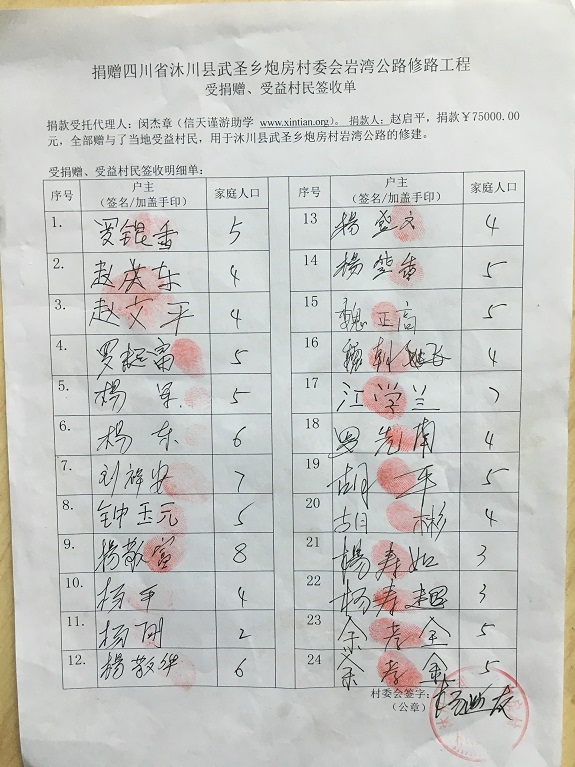 捐赠四川省沐川县武圣乡炮房村委会岩湾公路修路工程
受捐赠、受益村民签收单
捐款受托代理人：闵杰章（信天谨游助学 www.xintian.org）。捐款人：赵启平，捐款￥75000.00
元，全部赠与了当地受益村民，用于沐川县武圣乡炮房村岩湾公路的修建。
受捐赠、受益村民签收明细单：
序号 户主（签名/加盖手印） 家庭人口
1. 5
2. 赵庆东 4
3. 赵文平 4
4. 罗超富 5
5. 杨军 5
6. 杨东 6
7. 刘祥安 7
8. 钟玉元 5
9. 杨敬富 8
10. 杨平 4
11. 杨刚 2
12. 楊敬华 6
序号 户主（签名/加盖手印） 家庭人口
13 楊登文 4
14 楊 5
15 魏正高 5
16 4
17 江学兰 7
18 罗先南 4
19 胡平 5
20 胡彬 4
21 楊寿如 3
22 杨寿 3
23 余孝全 5
24 余孝金 5
村委会签字：
（公章）